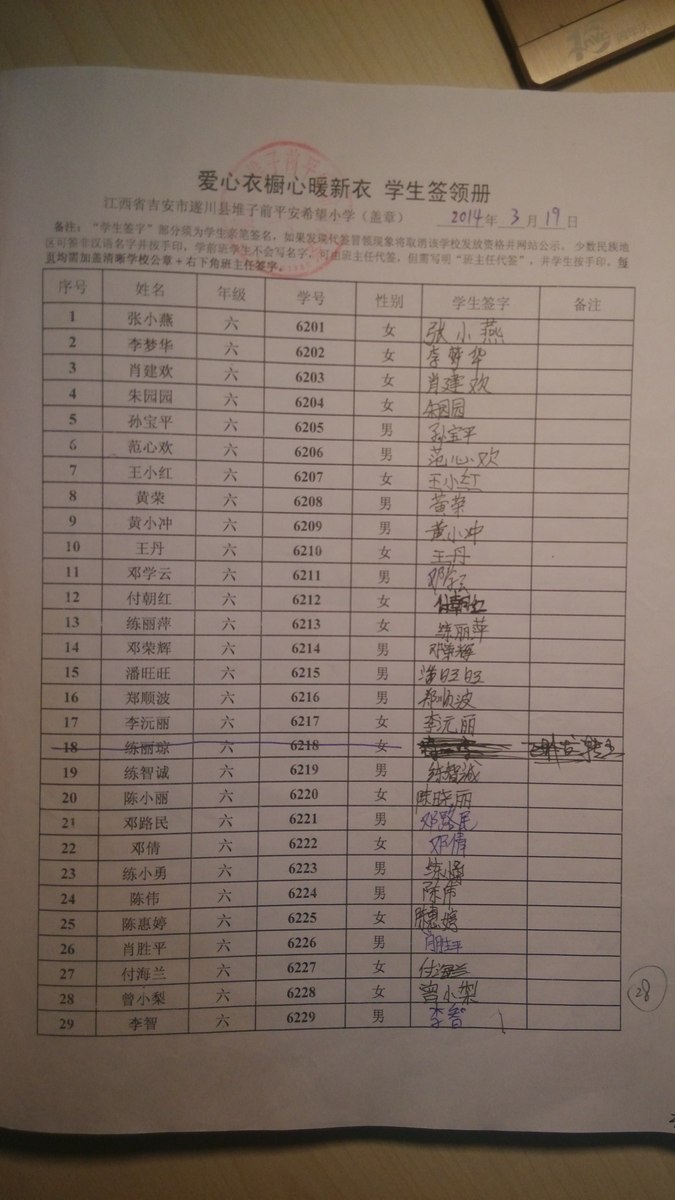 爱心衣橱心暖新衣 学生签领册
江西省吉安市遂川县堆子前平安希望小学（盖章） 2014年 3月19日
备注：“学生签字”部分须为学生亲笔签名，如果发现代签冒领现象将取消该学校发放资格并网站公示。少数民族地
区可签非汉语名字并按手印，学前班学生不会写名字，可由班主任代签，但需写明“班主任代签”，并学生按手印，每
页均需加盖清晰学校公章+右下角班主任签字。
序号 姓名 年级 学号 性别 学生签字 备注
1 张小燕 六 6201 女 张小燕
2 李梦华 六 6202 女 李梦华
3 肖建欢 六 6203 女 肖建欢
4 朱园园 六 6204 女 朱园园
5 孙宝平 六 6205 男 孙宝平
6 范心欢 六 6206 男 范心欢
7 王小红 六 6207 女 王小红
8 黄荣 六 6208 男 黄荣
9 黄小冲 六 6209 男 黄小冲
10 王丹 六 6210 女 王丹
11 邓学云 六 6211 男 邓学云
12 付朝红 六 6212 女 付朝红
13 练丽萍 六 6213 女 练丽萍
14 邓荣辉 六 6214 男 邓荣辉
15 潘旺旺 六 6215 男 潘旺旺
16 郑顺波 六 6216 男 郑顺波
17 李沅丽 六 6217 女 李元丽
18 练丽琼 六 6218 女
19 练智诚 六 6219 男 练智诚
20 陈小丽 六 6220 女 陈晓丽
21 邓路民 六 6221 男 邓路民
22 邓倩 六 6222 女 邓倩
23 练小勇 六 6223 男
24 陈伟 六 6224 男 陈伟
25 陈惠婷 六 6225 女 陈惠婷
26 肖胜平 六 6226 男 肖胜平
27 付海兰 六 6227 女 付海兰
28 曾小梨 六 6228 女 曾小梨
29 李智 六 6229 男 李智
28